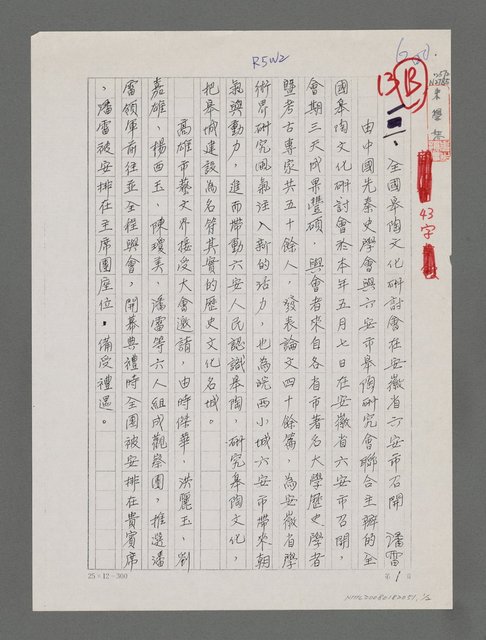 R5W2
13 B
43字
三、全國皋陶文化研討會在安徽省六安市召開 潘雷
由中國先秦史學會與六安市皋陶研究會聯合主辦的全
國皋陶文化研討會於本年五月七日在安徽省六安市召開，
會期三天成果豐碩，與會者來自各省市著名大學歷史學者
暨考古專家共五十餘人，發表論文四十餘篇，為安徽省學
術界研究風氣注入新的活力，也為皖西小城六安市帶來朝
氣與動力，進而帶動六安人民認識皋陶，研究皋陶文化，
把皋城建設為名符其實的歷史文化名城。
高雄市藝文界接受大會邀請，由時傑華、洪麗玉、劉
嘉雄、楊西玉、陳瓊美、潘雷等六人組成觀察團，推選潘
雷領軍前往並全程與會，開幕典禮時全團被安排在貴賓席
，潘雷被安排在主席團座位，備受禮遇。
25×12=300
第1頁
NMTL20080182051, 1/2